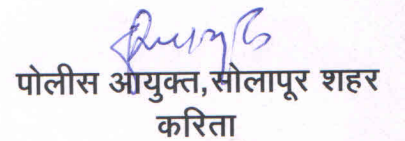 पोलीस आयुक्त,सोलापूर शहर
करिता